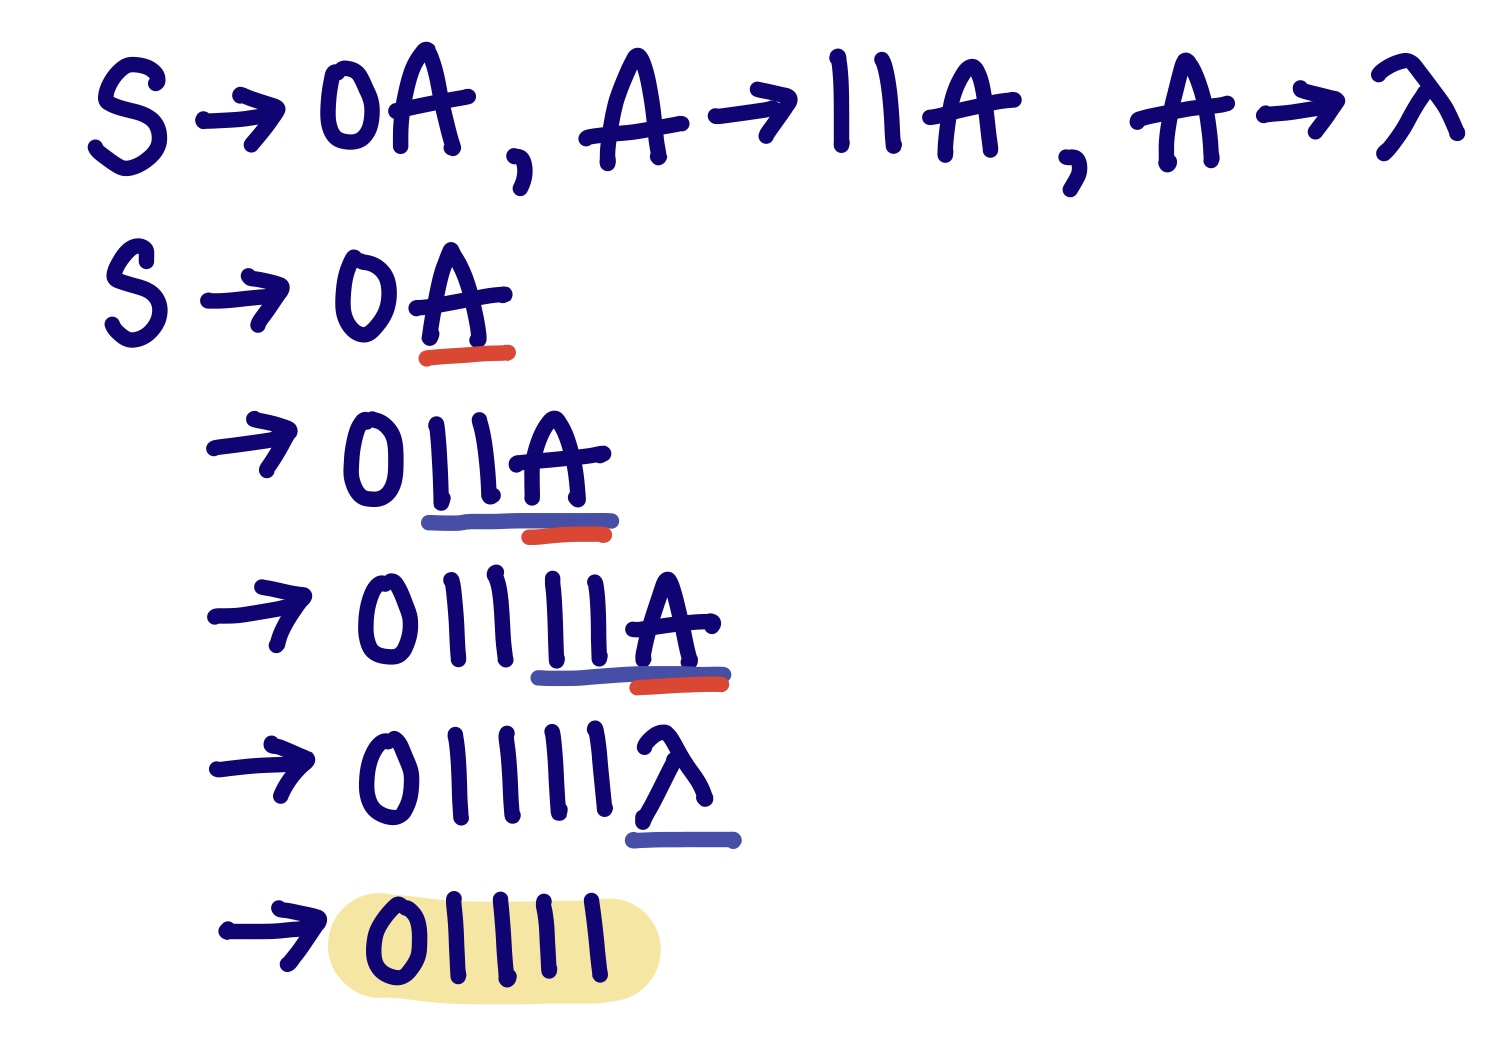 S → 0A, A → 11A, A → λ
S → 0A
→ 011A
→ 01111A
→ 01111λ
→ 01111